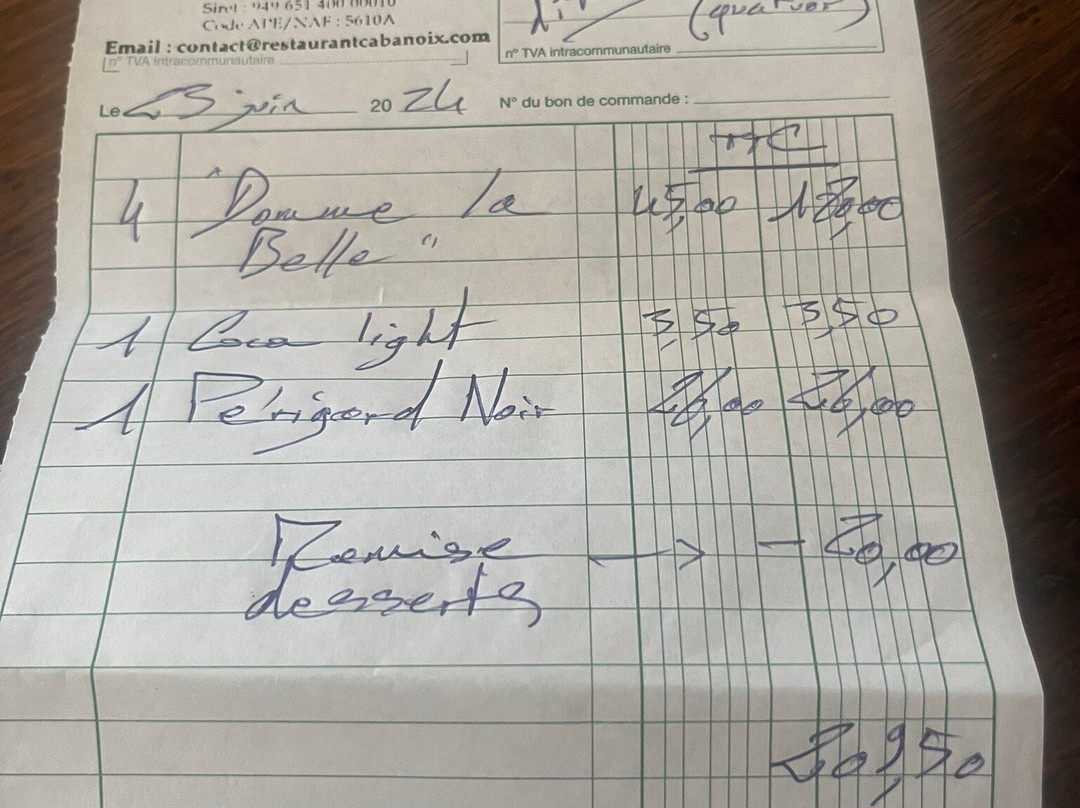 Siret : 949 651 400 00010
Code APE/NAF : 5610A
(quatuor)
Email : contact@restaurantcabanoix.com
n° TVA intracommunautaire
n° TVA intracommunautaire
Le 23 juin 2024 N° du bon de commande :
TTC
4 "Domme la 45,00 180,00
Belle"
1 Coca light 3,50 3,50
1 Périgord Noir 26,00 26,00
Remise → - 20,00
desserts
209,50